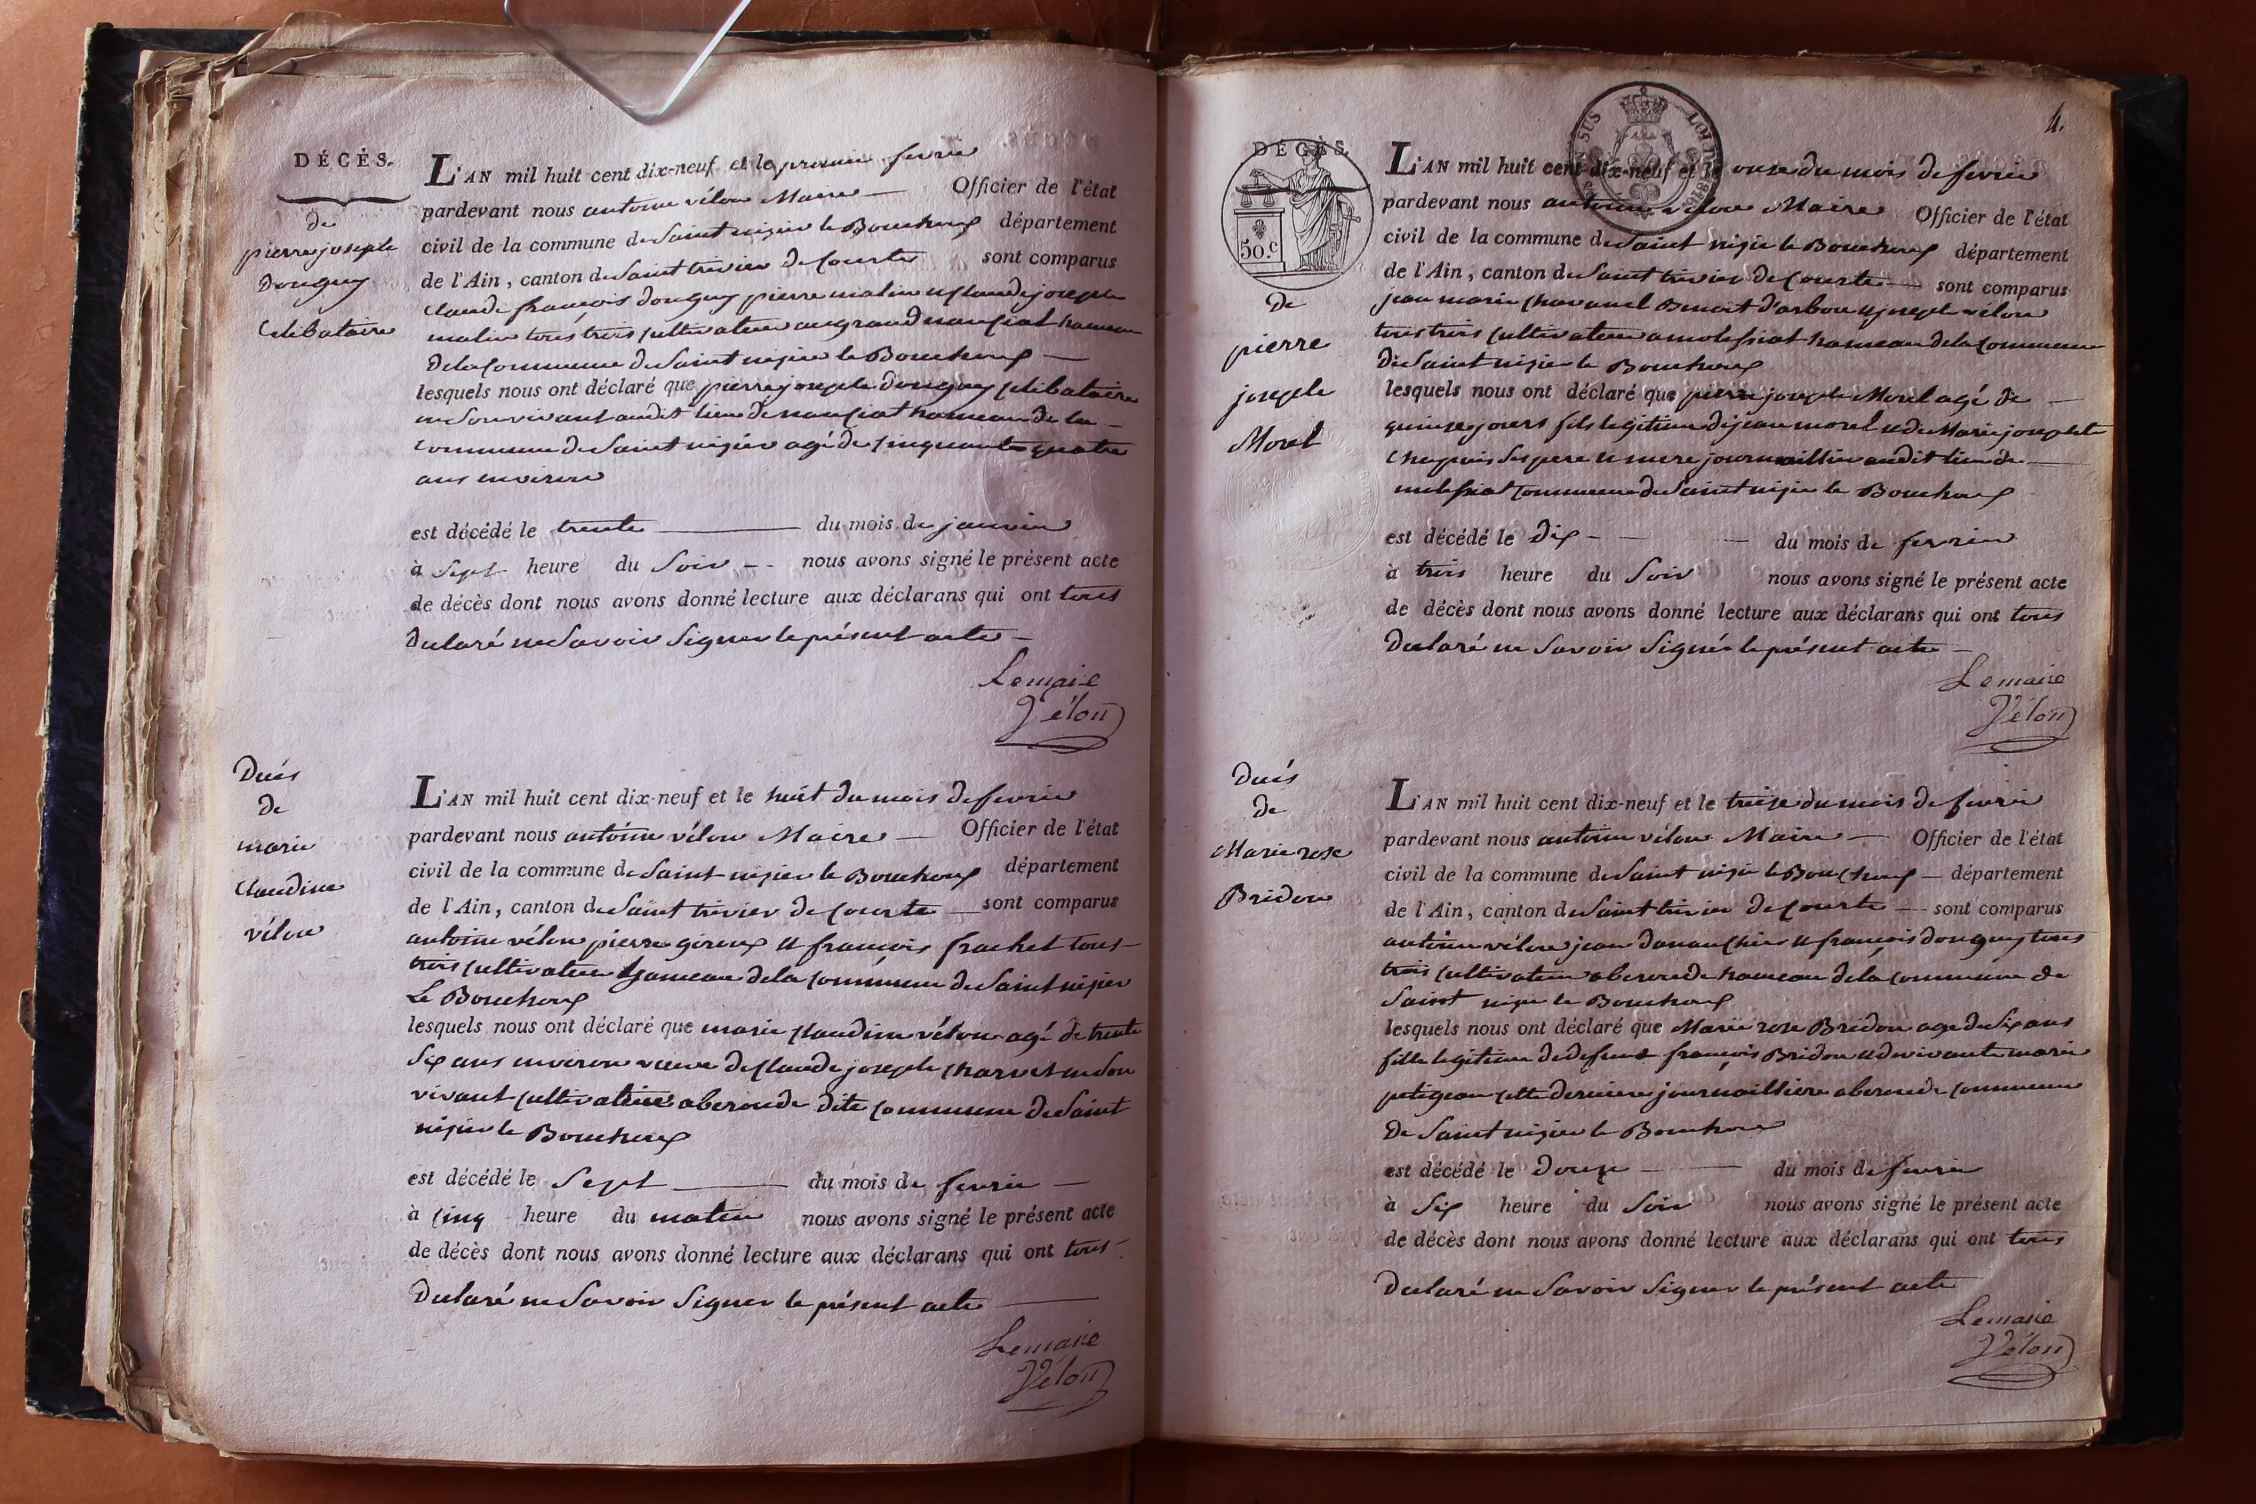 DÉCÈS.
de
pierre joseph
Donguy
Celibataire
L'AN mil huit cent dix-neuf et le premier fevrier
pardevant nous antoine vélon Maire Officier de l'état
civil de la commune de Saint nizier le Bouchoux département
de l'Ain, canton de Saint trivier de Courte sont comparus
Claude françois donguy pierre malin et Claude joseph
malin tous trois cultivateur au grand nanciat hameau
de la Commune de Saint nizier le Bouchoux
lesquels nous ont déclaré que pierre joseph donguy Celibataire
en Son vivant audit lieu de nanciat hameau de la
Commune de Saint nizier agé de Cinquante quatre
ans environ
est décédé le trente du mois de janvier
à Sept heure du Soir nous avons signé le présent acte
de décès dont nous avons donné lecture aux déclarans qui ont tous
Declaré ne Savoir Signer le présent acte
Lemaire
Vélon
Decés
de
marie
Claudine
vélon
L'AN mil huit cent dix-neuf et le huit du mois de fevrier
pardevant nous antoine vélon Maire Officier de l'état
civil de la commune de Saint nizier le Bouchoux département
de l'Ain, canton de Saint trivier de Courte sont comparus
antoine vélon pierre giroux et françois frachet tous
trois Cultivateur hameau de la Commune de Saint nizier
Le Bouchoux
lesquels nous ont déclaré que marie Claudine vélon agé de trente
Six ans environ veuve de Claude joseph Charvet en Son
vivant Cultivateur a beroude dite Commune de Saint
nizier le Bouchoux
est décédé le Sept du mois de fevrier
à Cinq heure du matin nous avons signé le présent acte
de décès dont nous avons donné lecture aux déclarans qui ont tous
Declaré ne Savoir Signer le présent acte
Lemaire
Vélon
4.
DÉCÈS.
50.c
De
pierre
joseph
Morel
L'AN mil huit cent dix-neuf et le onze du mois de fevrier
pardevant nous antoine vélon Maire Officier de l'état
civil de la commune de Saint nizier le Bouchoux département
de l'Ain, canton de Saint trivier de Courte sont comparus
jean marie Chavanel Benoit d'arbon et joseph vélon
tous trois Cultivateur a molessiat hameau de la Commune
de Saint nizier le Bouchoux
lesquels nous ont déclaré que pierre joseph Morel agé de
quinze jours fils legitime de jean morel et de Marie josephte
Chapuis Ses pere et mere journaillier audit lieu de
molessiat Commune de Saint nizier le Bouchoux
est décédé le Dix du mois de fevrier
à trois heure du Soir nous avons signé le présent acte
de décès dont nous avons donné lecture aux déclarans qui ont tous
Declaré ne Savoir Signér le présent acte
Lemaire
Vélon
Decés
de
Marie rose
Bridon
L'AN mil huit cent dix-neuf et le treize du mois de fevrier
pardevant nous antoine vélon Maire Officier de l'état
civil de la commune de Saint nizier le Bouchoux département
de l'Ain, canton de Saint trivier de Courte sont comparus
antoine vélon jean dananchier et françois donguy tous
trois Cultivateur a beroude hameau de la Commune de
Saint nizier le Bouchoux
lesquels nous ont déclaré que Marie rose Bridon age de Six ans
fille legitime de defunt françois Bridon et de vivante marie
petigean Cette derniere journailliere a beroude Commune
De Saint nizier le Bouchoux
est décédé le Douze du mois de fevrier
à Six heure du Soir nous avons signé le présent acte
de décès dont nous avons donné lecture aux déclarans qui ont tous
Declaré ne Savoir Signer le présent acte
Lemaire
Vélon